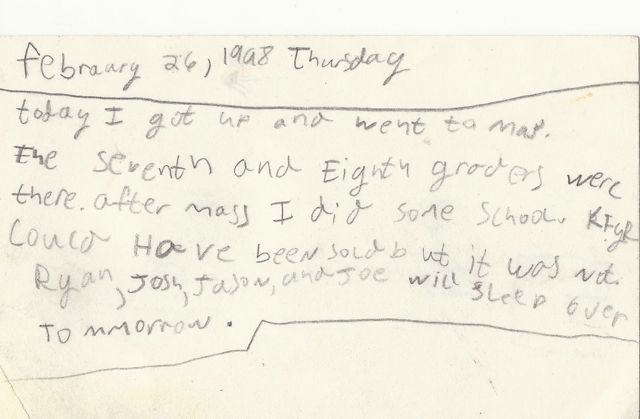 febraury 26, 1998 Thursday
today I got up and went to mas.
The Seventh and Eighth graders were
there. after mass I did some School. KFYR
Could Have been sold but it was not.
Ryan, Josh, Jason, and Joe will sleep over
Tommorrow.